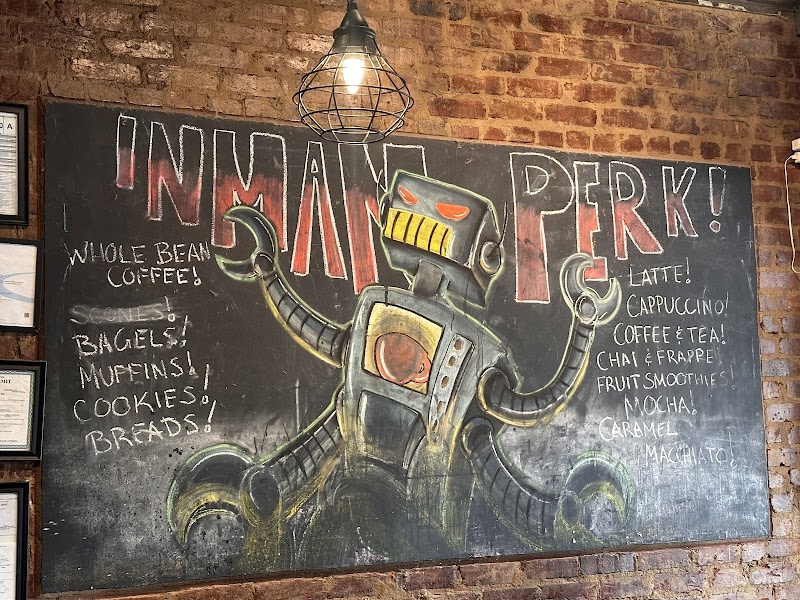 INMAN PERK!
WHOLE BEAN
COFFEE!
SCONES!
BAGELS!
MUFFINS!
COOKIES!
BREADS!
LATTE!
CAPPUCCINO!
COFFEE & TEA!
CHAI & FRAPPE
FRUIT SMOOTHIES!
MOCHA!
CARAMEL
MACCHIATO!